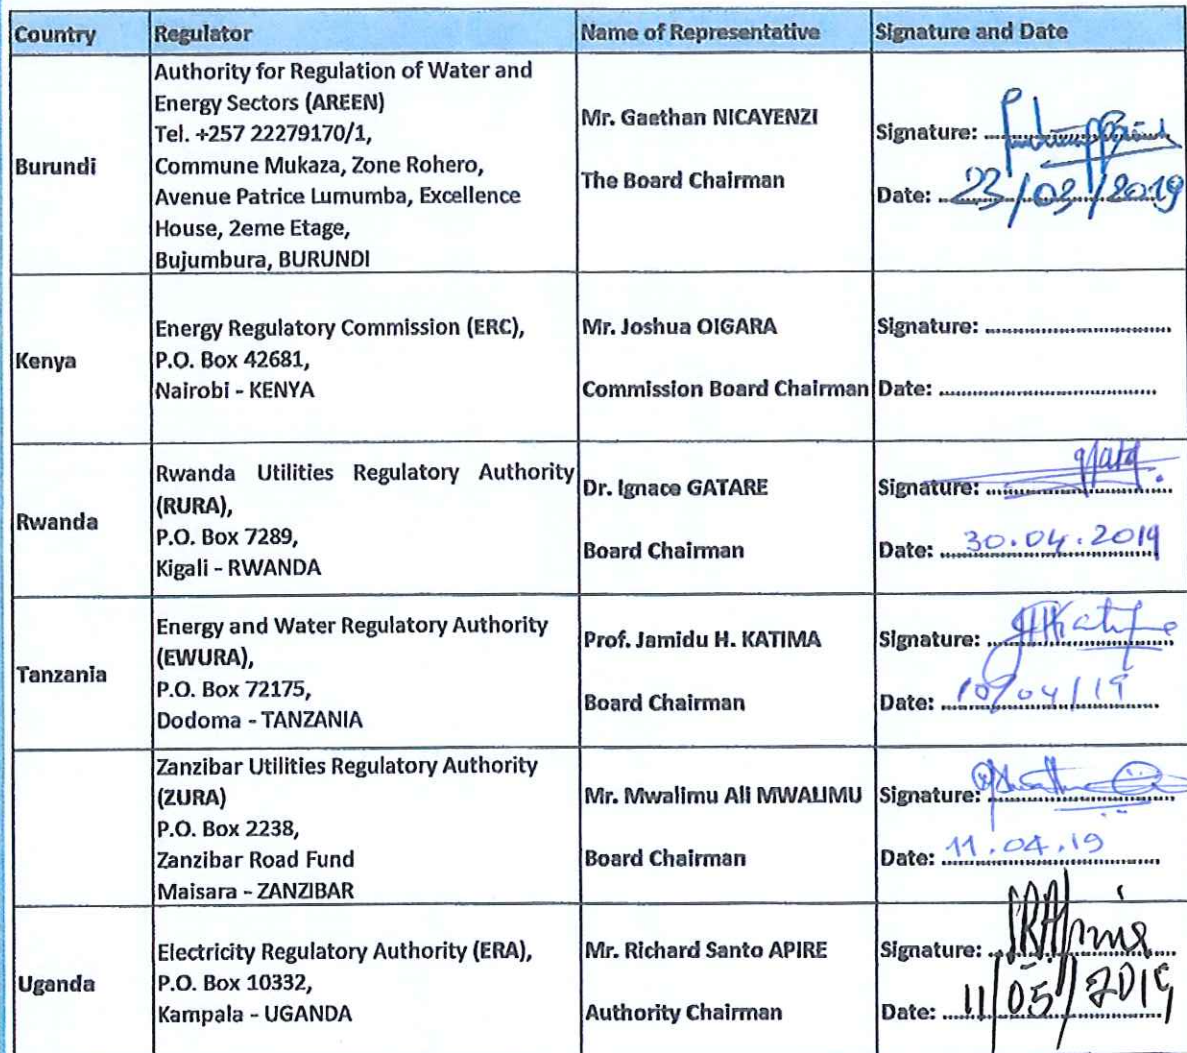 Country Regulator Name of Representative Signature and Date
Burundi
Authority for Regulation of Water and
Energy Sectors (AREEN)
Tel. +257 22279170/1,
Commune Mukaza, Zone Rohero,
Avenue Patrice Lumumba, Excellence
House, 2eme Etage,
Bujumbura, BURUNDI
Mr. Gaethan NICAYENZI
The Board Chairman
Signature:
Date: 23/03/2019
Kenya
Energy Regulatory Commission (ERC),
P.O. Box 42681,
Nairobi - KENYA
Mr. Joshua OIGARA
Commission Board Chairman
Signature: ................................
Date: ................................
Rwanda
Rwanda Utilities Regulatory Authority
(RURA),
P.O. Box 7289,
Kigali - RWANDA
Dr. Ignace GATARE
Board Chairman
Signature:
Date: 30.04.2019
Tanzania
Energy and Water Regulatory Authority
(EWURA),
P.O. Box 72175,
Dodoma - TANZANIA
Prof. Jamidu H. KATIMA
Board Chairman
Signature:
Date: 10/04/19
Zanzibar Utilities Regulatory Authority
(ZURA)
P.O. Box 2238,
Zanzibar Road Fund
Maisara - ZANZIBAR
Mr. Mwalimu Ali MWALIMU
Board Chairman
Signature:
Date: 11.04.19
Uganda
Electricity Regulatory Authority (ERA),
P.O. Box 10332,
Kampala - UGANDA
Mr. Richard Santo APIRE
Authority Chairman
Signature:
Date: 11/05/2019